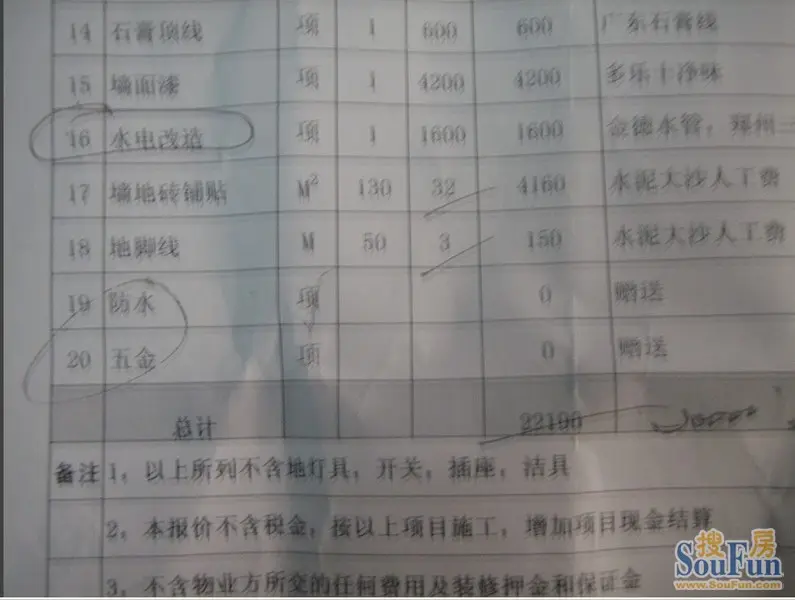 14 石膏顶线 项 1 600 600 广东石膏线
15 墙面漆 项 1 4200 4200 多乐士净味
16 水电改造 项 1 1600 1600 金德水管，郑州三
17 墙地砖铺贴 M² 130 32 4160 水泥大沙人工费
18 地脚线 M 50 3 150 水泥大沙人工费
19 防水 项 0 赠送
20 五金 项 0 赠送
总计 22190
备注 1，以上所列不含地灯具，开关，插座，洁具
2，本报价不含税金，按以上项目施工，增加项目现金结算
3，不含物业方所交的任何费用及装修押金和保证金
搜房
SouFun
www.SouFun.com